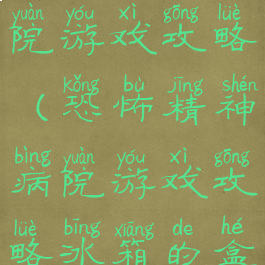 yuàn yóu xì gōng lüè
院游戏攻略
kǒng bù jīng shén
（恐怖精神
bìng yuàn yóu xì gōng
病院游戏攻
lüè bīng xiāng de hé
略冰箱的盒